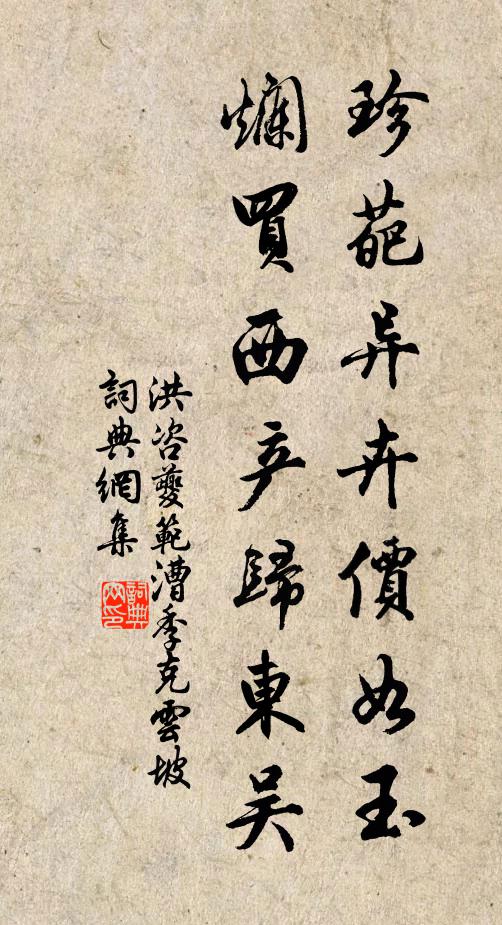 珍葩异卉價如玉
爛買西产歸東吴
洪咨夔範漕季克雲坡
詞典網集
詞典網印